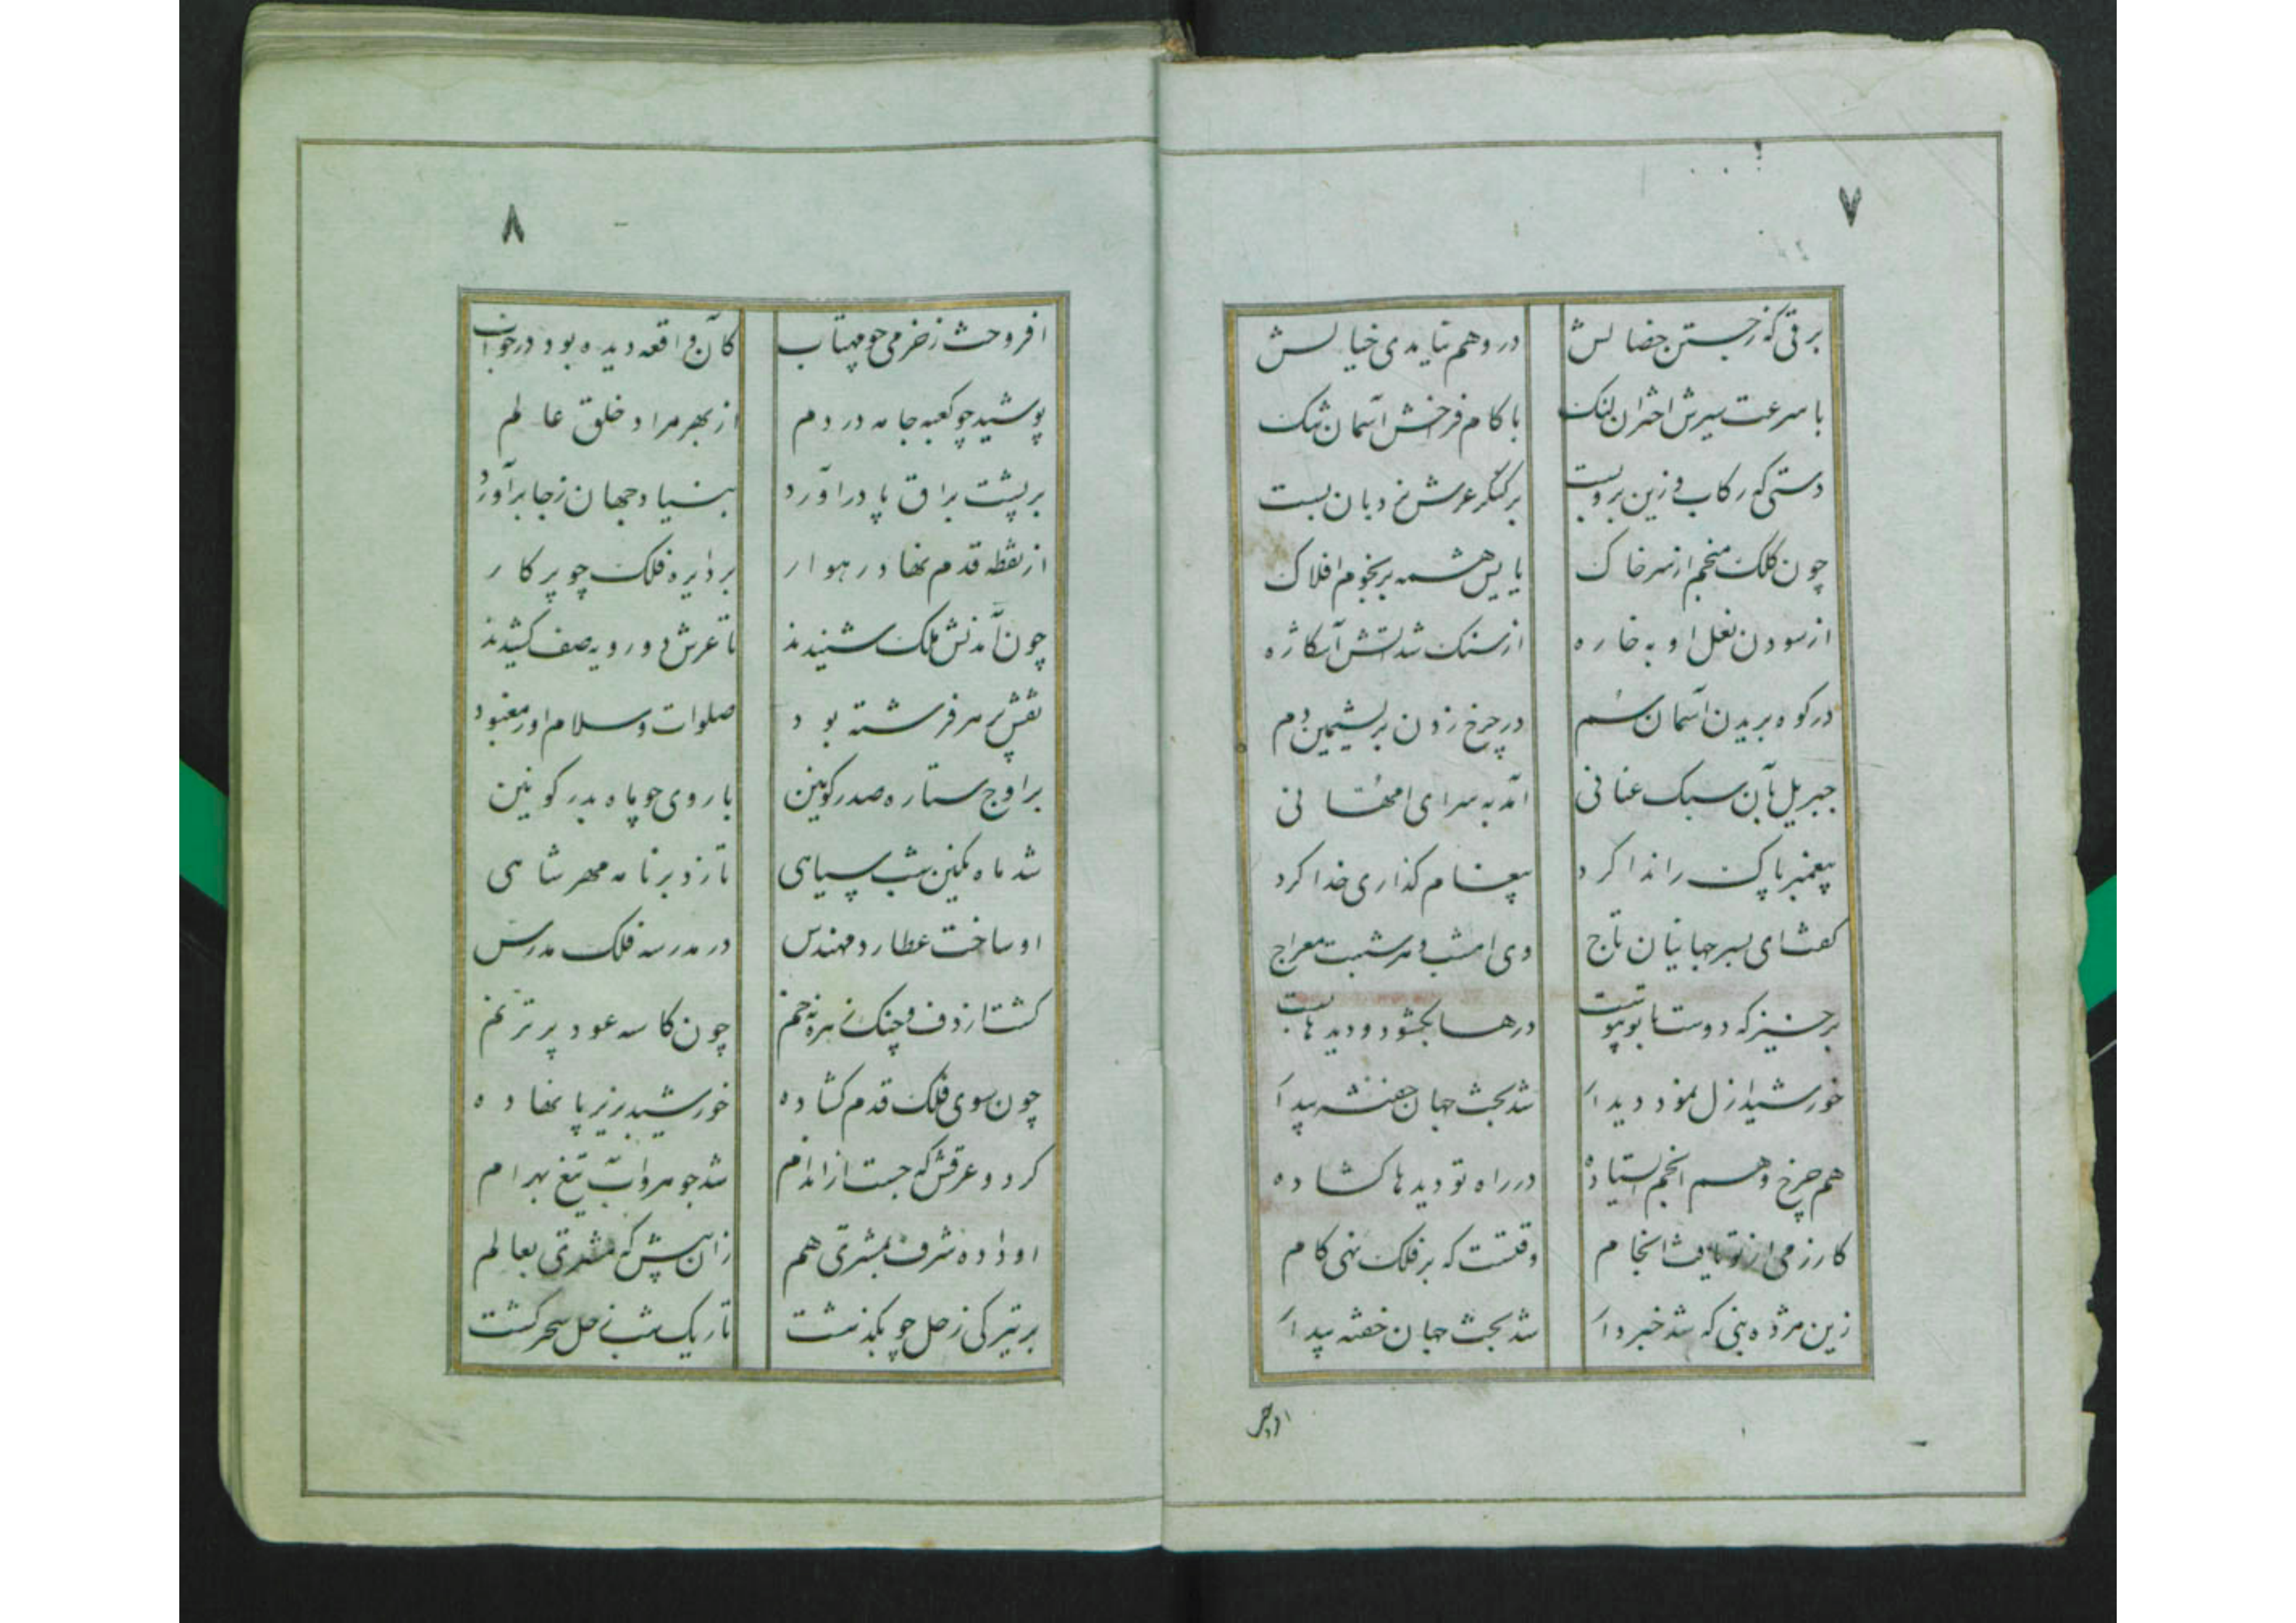 ۷
برقی که ز جستن خصالش در وهم نیامدی خیالش
با سرعت سیرش اختران لنک با کام فرخش آسمان تنک
دستی که رکاب و زین برو بست بر کنکر عرش نردبان بست
چون کلک منجم از سر خاک پایش همه بر نجوم افلاک
از سودن نعل او به خاره از سنک شد آتش آشکاره
در کوه بریدن آسمان سم در چرخ زدن بریشمین دم
جبریل بآن سبک عنانی آمد به سرای امهانی
پیغمبر پاک را ندا کرد پیغام کذاری خدا کرد
کفت ای بسر جهانیان تاج وی امشب و هر شبت معراج
برخیز که دوست با تو پیوست درها بکشود و دیدها بست
خورشید ازل نمود دیدار شد بخت جهان خفته بیدار
هم چرخ و هم انجم ایستاده در راه تو دیدها کشاده
کار زمی از تو یافت انجام وقتست که بر فلک نهی کام
زین مژده نبی که شد خبردار شد بخت جهان خفته بیدار
افروخت
۸
افروخت ز خرمی چو مهتاب کان واقعه دیده بود در خواب
پوشید چو کعبه جامه در دم از بهر مراد خلق عالم
بر پشت براق پا در آورد بنیاد جهان ز جا برآورد
از نقطه قدم نهاد رهوار بر دایره فلک چو پرکار
چون آمدنش ملک شنیدند تا عرش دو رویه صف کشیدند
نقش پر هر فرشته بود صلوات و سلام او ز معبود
بر اوج ستاره صدر کونین با روی چو ماه بدر کونین
شد ماه نکین شب سیاهی تا زد بر نامه مهر شاهی
او ساخت عطارد مهندس در مدرسه فلک مدرس
کشت از دف و چنک زهره خم چون کاسه عود پر ترنم
چون سوی فلک قدم کشاده خورشید بزیر پا نهاده
کرد و عرقش که جست از اندام شد جوهر و آب تیغ بهرام
او داده شرف بمشتری هم زان پیش که مشتری بعالم
بر تیرکی زحل چو بکذشت تاریک شب زحل سحر کشت